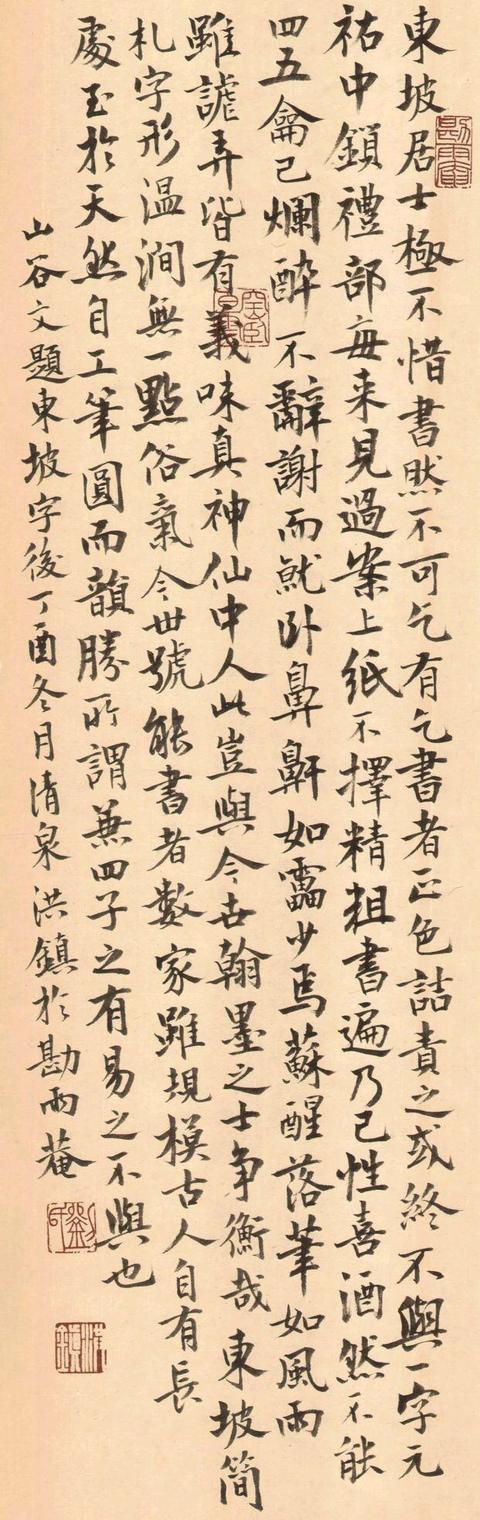 東坡居士極不惜書然不可乞有乞書者正色詰責之或終不與一字元
祐中鎖禮部每来見過案上紙不擇精粗書遍乃已性喜酒然不能
四五龠已爛醉不辭謝而就卧鼻鼾如靁少焉蘇醒落筆如風雨
雖謔弄皆有義味真神仙中人此豈與今世翰墨之士争衡哉東坡簡
札字形温潤無一點俗氣今世號能書者數家雖規模古人自有長
處至於天然自工筆圓而韻勝所謂兼四子之有易之不與也
山谷文題東坡字後丁酉冬月清泉洪鎮於勘雨菴